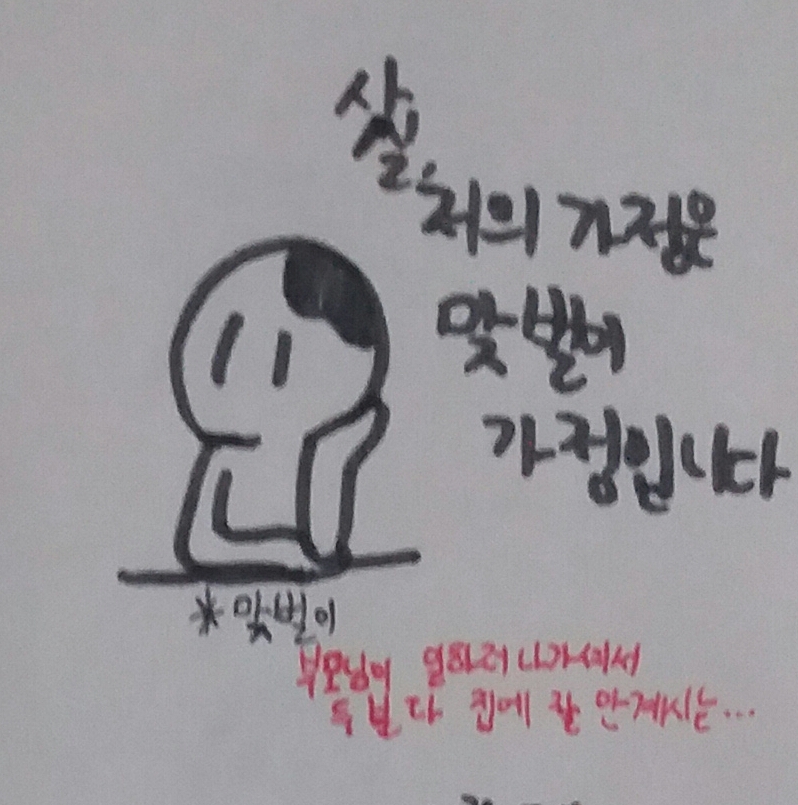 저의 가정은
맞벌이
가정입니다
*맞벌이
부모님이 일하러 나가셔서
두 분 다 집에 잘 안계시는...